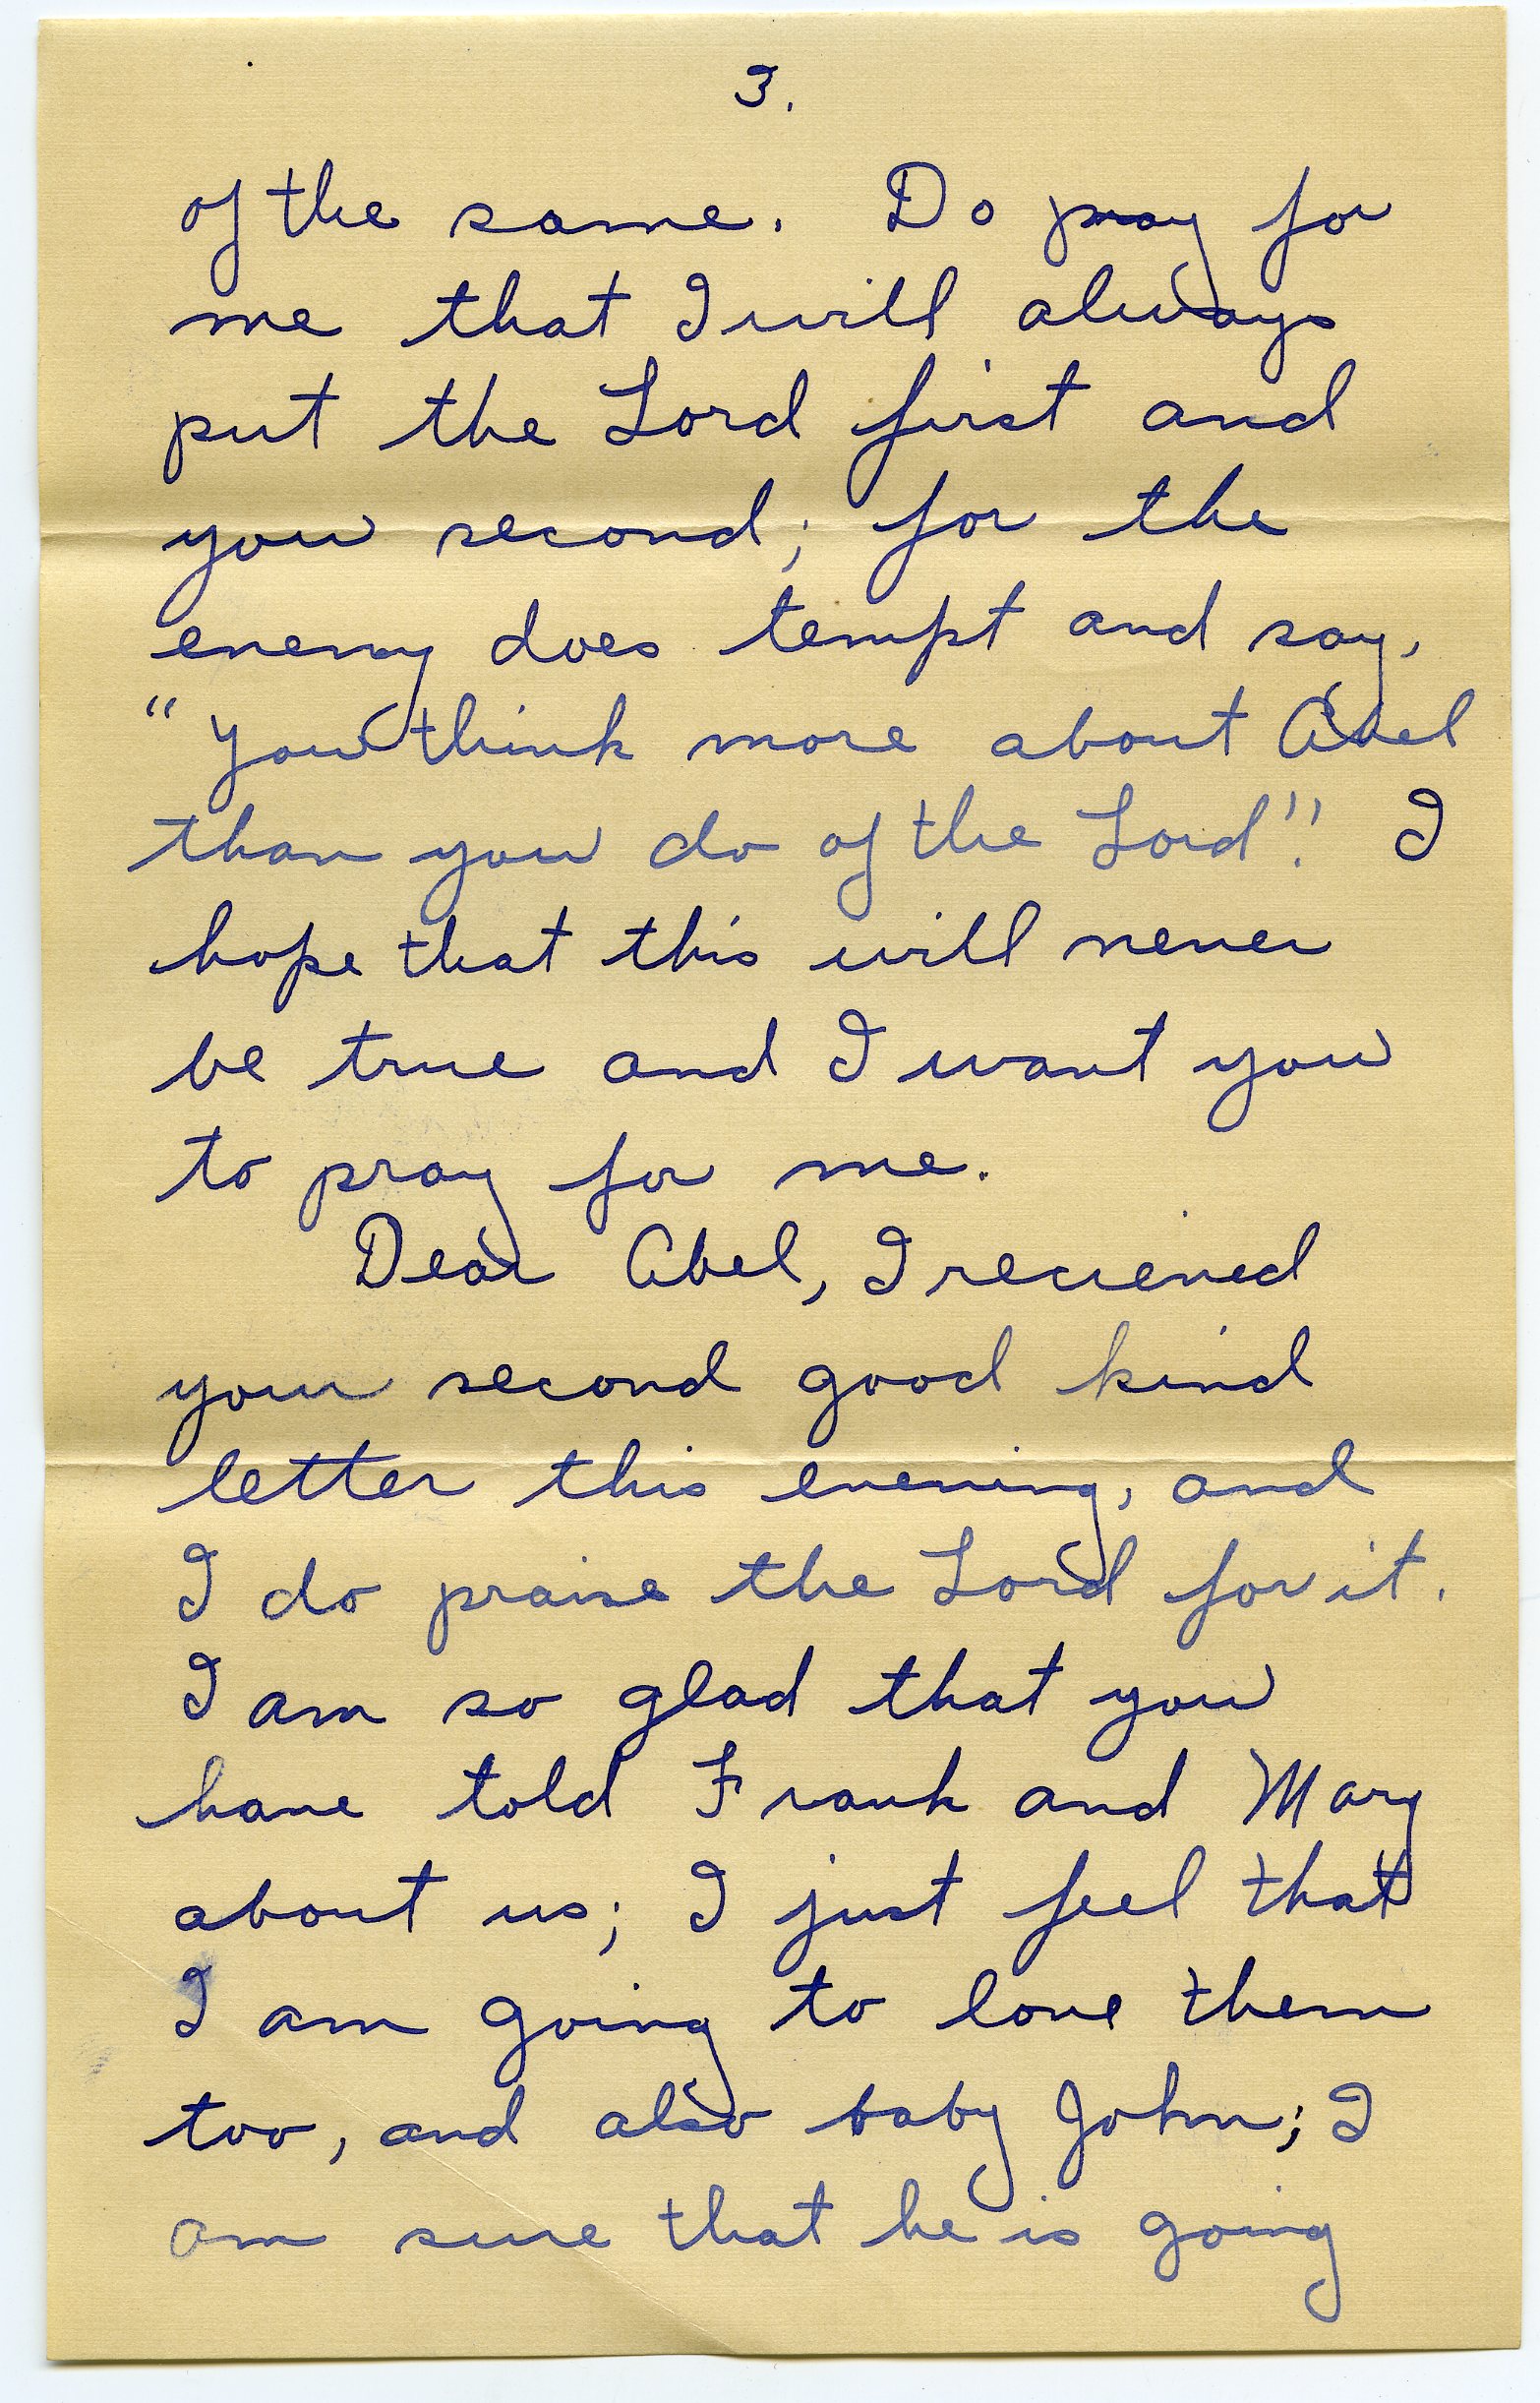 3.
of the same. Do pray for
me that I will always
put the Lord first and
you second; for the
enemy does tempt and say,
"You think more about Abel
than you do of the Lord". I
hope that this will never
be true and I want you
to pray for me.
Dear Abel, I recieved
your second good kind
letter this evening, and
I do praise the Lord for it.
I am so glad that you
have told Frank and Mary
about us; I just feel that
I am going to love them
too, and also baby John; I
am sure that he is going